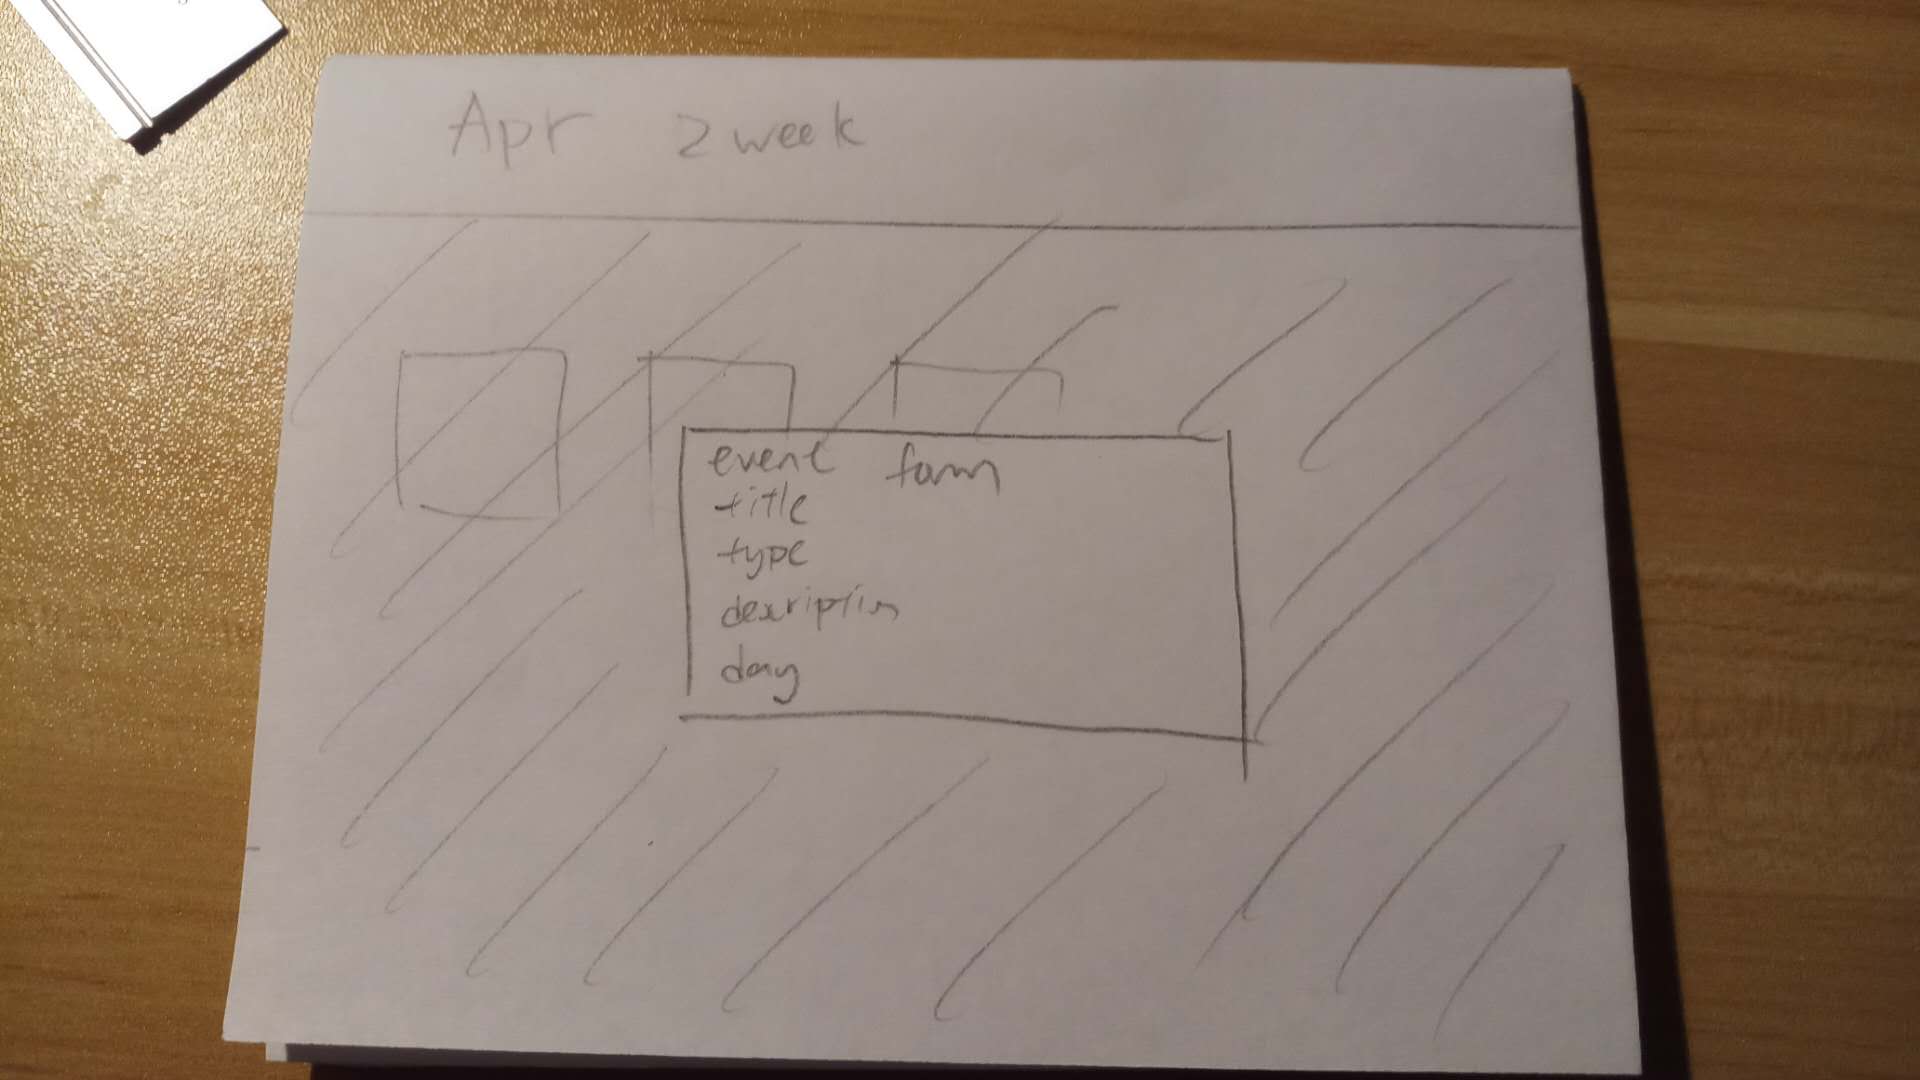 Apr 2 week
event form
title
type
description
day